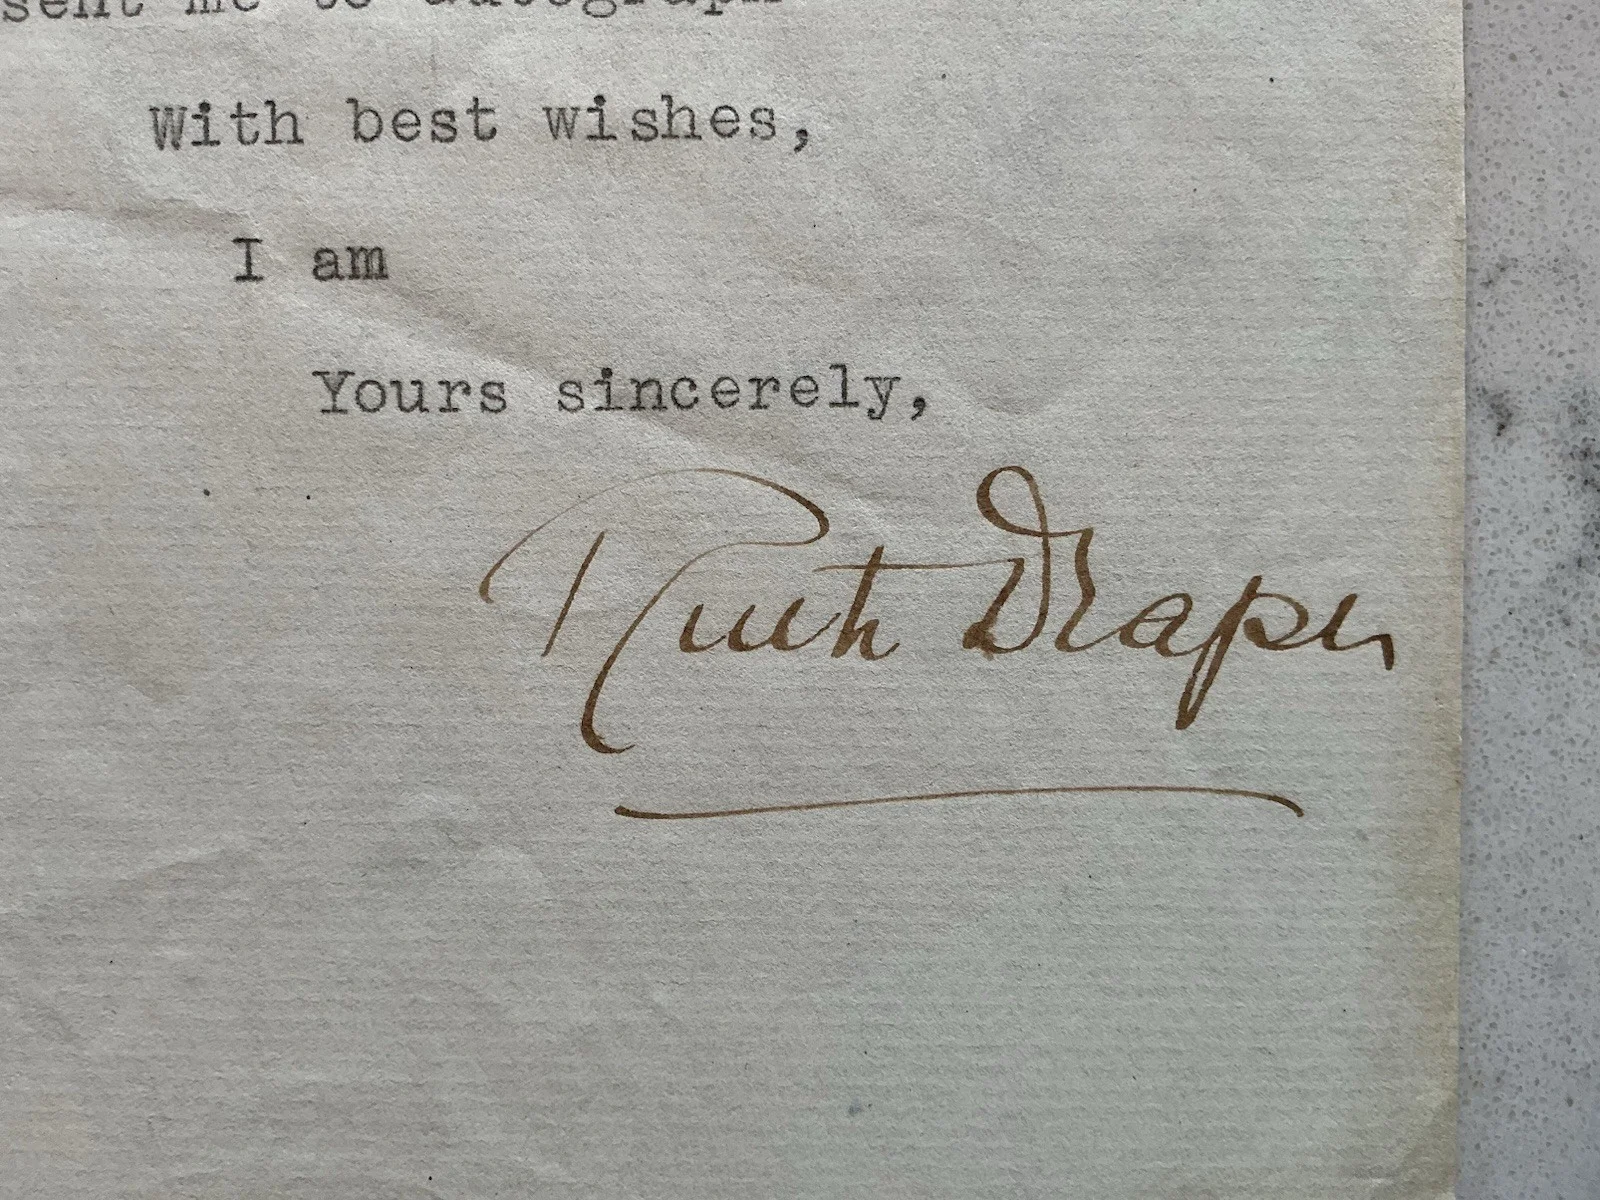 sent me to autograph
With best wishes,
I am
Yours sincerely,
Ruth Draper